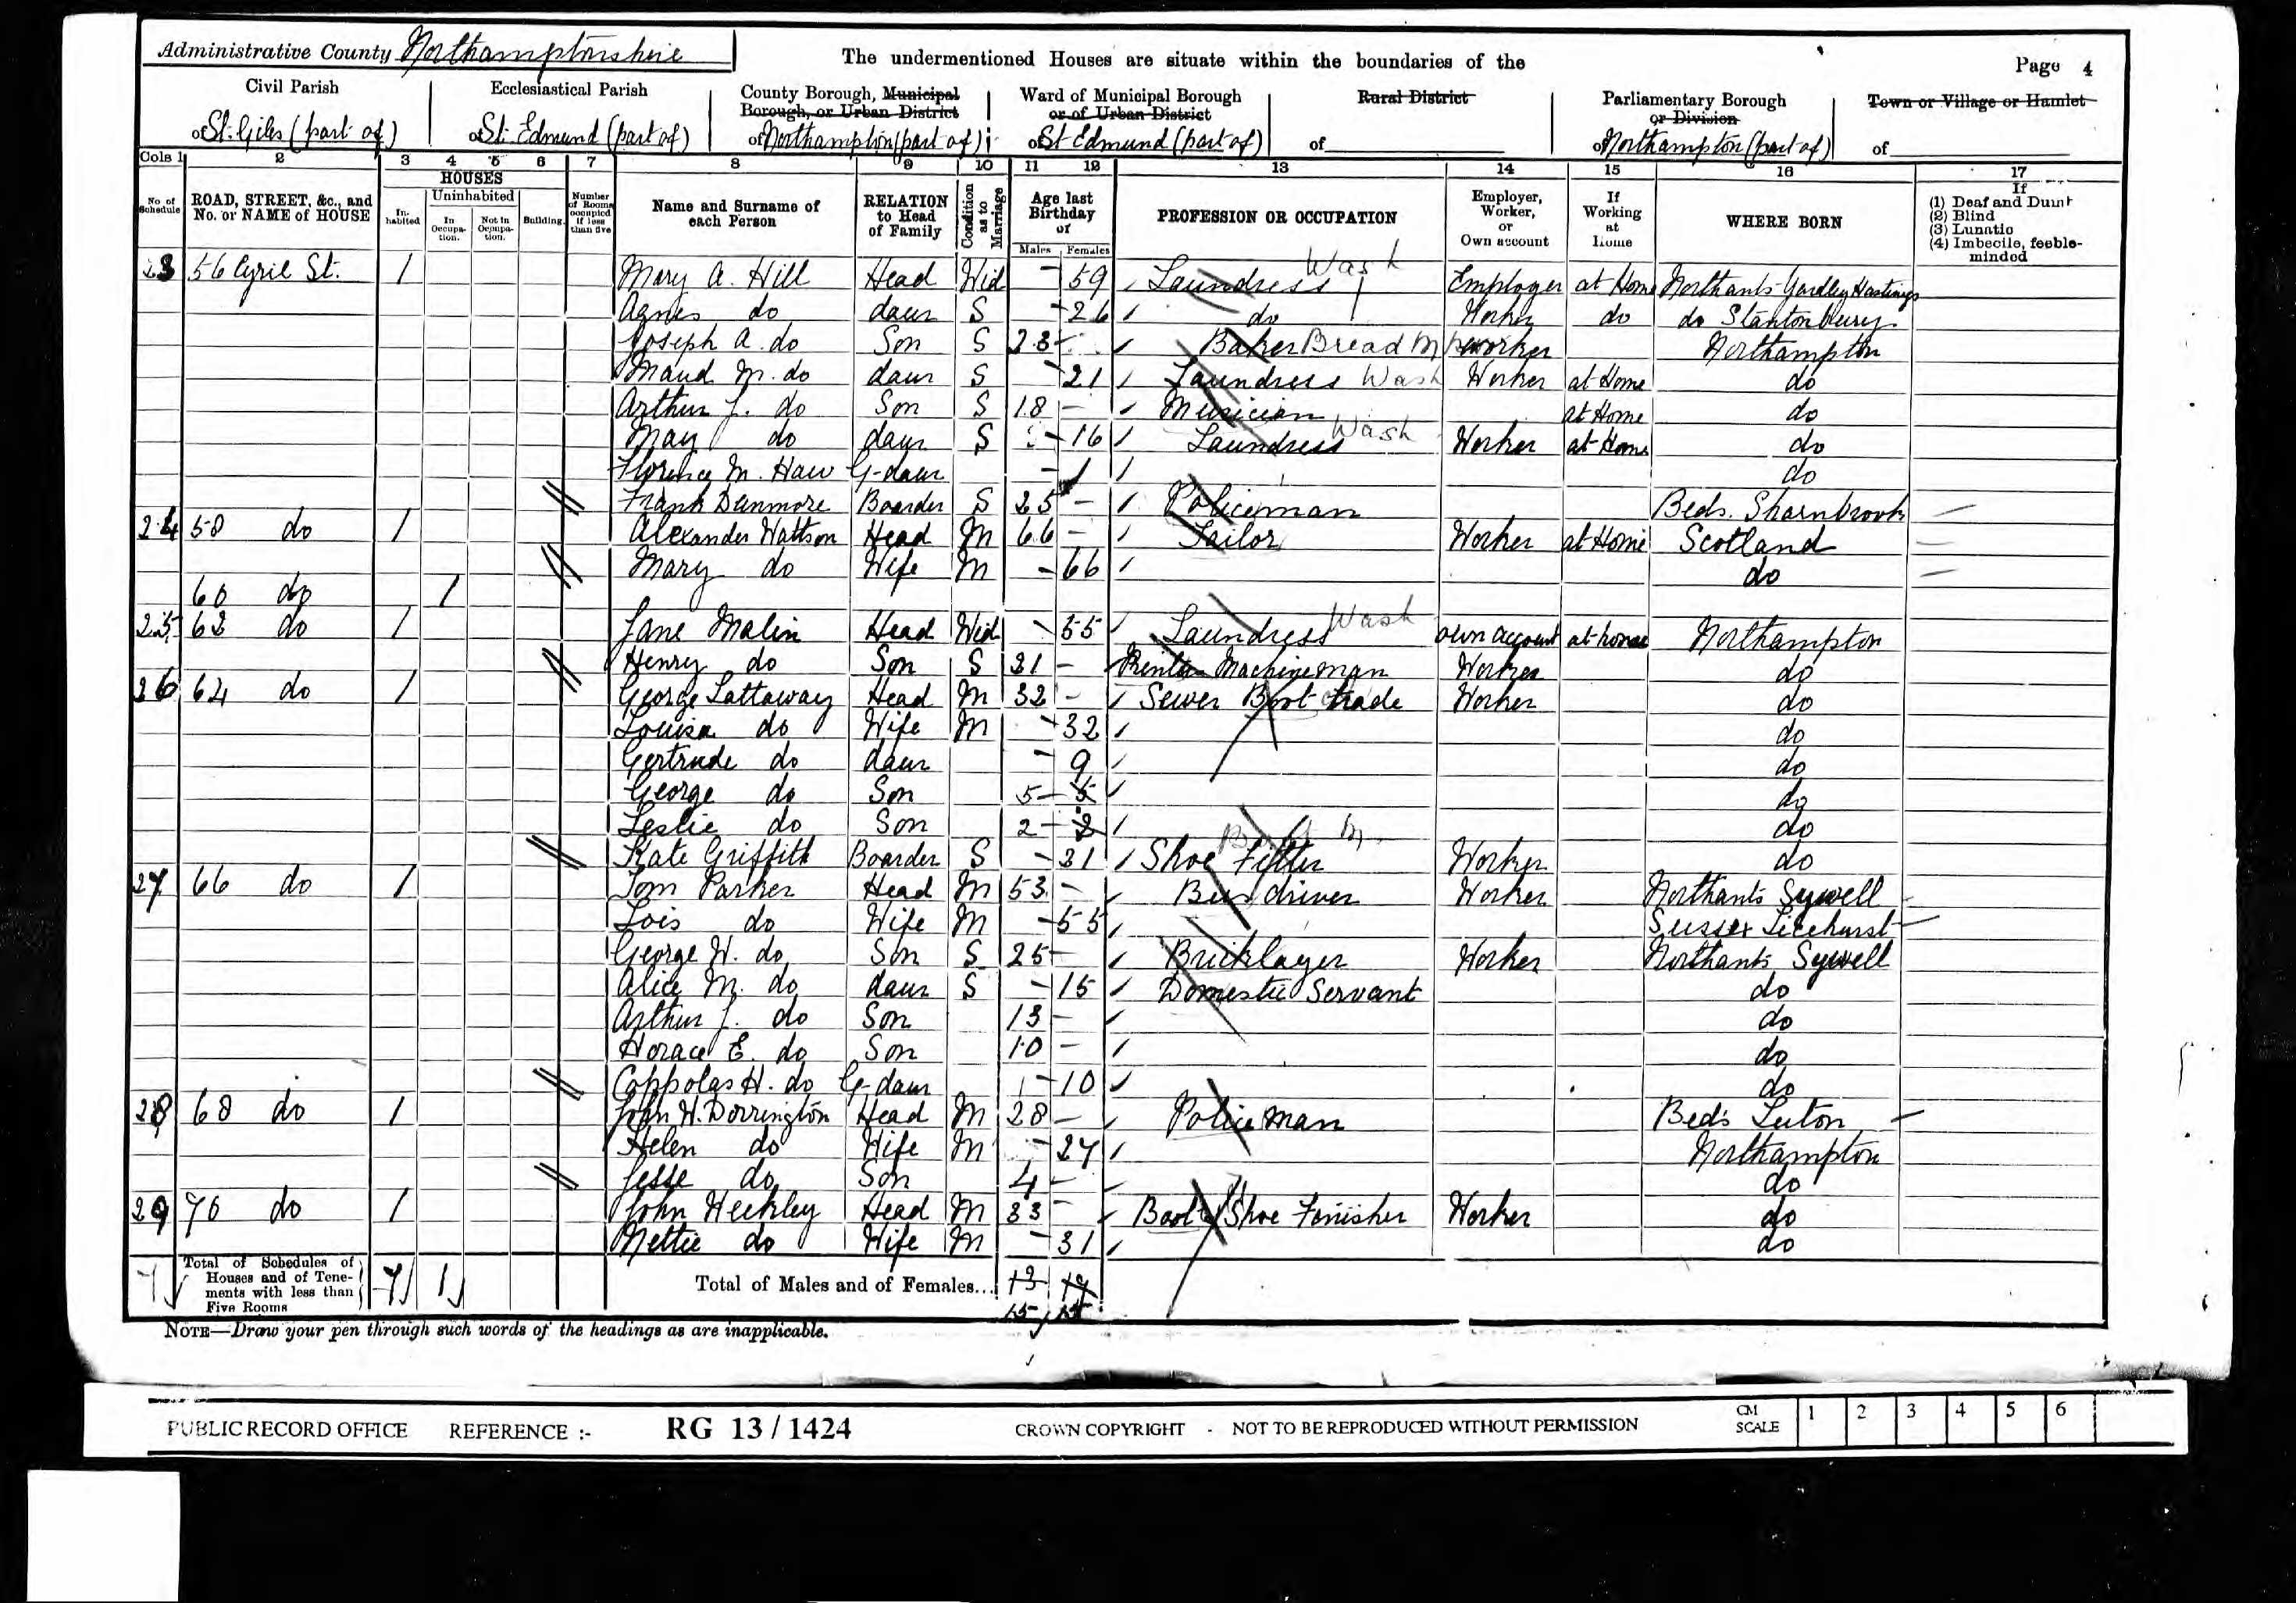 Administrative County Northamptonshire
The undermentioned Houses are situate within the boundaries of the
Page 4
Civil Parish
of St. Giles (part of)
Ecclesiastical Parish
of St. Edmund (part of)
County Borough, Municipal
Borough, or Urban District
of Northampton (part of)
Ward of Municipal Borough
or of Urban District
of St Edmund (part of)
Rural District
of
Parliamentary Borough
or Division
of Northampton (part of)
Town or Village or Hamlet
of
Cols 1 2 3 4 5 6 7 8 9 10 11 12 13 14 15 16 17
No. of Schedule
ROAD, STREET, &c., and No. or NAME of HOUSE
HOUSES
Inhabited
Uninhabited
In Occupation.
Not in Occupation.
Building
Number of Rooms occupied if less than five
Name and Surname of each Person
RELATION to Head of Family
Condition as to Marriage
Age last Birthday of
Males Females
PROFESSION OR OCCUPATION
Employer, Worker, or Own account
If Working at Home
WHERE BORN
If
(1) Deaf and Dumb
(2) Blind
(3) Lunatic
(4) Imbecile, feeble-minded
23 56 Cyril St. 1 Mary A. Hill Head Wid 59 Laundress Wash Employer at Home Northants Yardley Hastings
Agnes do daur S 26 do Worker do do Stantonbury
Joseph A. do Son S 23 Baker Bread Worker Northampton
Maud M. do daur S 21 Laundress Wash Worker at Home do
Arthur J. do Son S 18 Musician at Home do
May do daur S 16 Laundress Wash Worker at Home do
Florence M. Haw G-daur 1 do
Frank Dunmore Boarder S 25 Policeman Beds. Sharnbrook
24 58 do 1 Alexander Wattson Head M 66 Tailor Worker at Home Scotland
Mary do Wife M 66 do
60 do 1
25 62 do 1 Jane Malin Head Wid 55 Laundress Wash own account at home Northampton
Henry do Son S 31 Machineman Worker do
26 64 do 1 George Lattaway Head M 32 Sewer Boot trade Worker do
Louisa do Wife M 32 do
Gertrude do daur 9 do
George do Son 5 5 do
Leslie do Son 2 2 do
Kate Griffith Boarder S 21 Shoe Fitter Worker do
27 66 do 1 Tom Parker Head M 53 Bus driver Worker Northants Sywell
Lois do Wife M 55 Sussex Ticehurst
George W. do Son S 25 Bricklayer Worker Northants Sywell
Alice M. do daur S 15 Domestic Servant do
Arthur J. do Son 13 do
Horace E. do Son 10 do
Coppolas H. do G-daur 10 do
28 68 do 1 John H. Dorrington Head M 28 Policeman Beds Luton
Helen do Wife M 27 Northampton
Jesse do Son 4 do
29 70 do 1 John Heckley Head M 33 Boot & Shoe Finisher Worker do
Nettie do Wife M 31 do
7 Total of Schedules of Houses and of Tenements with less than Five Rooms 7 1
Total of Males and of Females... 13 17
15 15
NOTE—Draw your pen through such words of the headings as are inapplicable.
PUBLIC RECORD OFFICE REFERENCE :- RG 13 / 1424 CROWN COPYRIGHT - NOT TO BE REPRODUCED WITHOUT PERMISSION
CM SCALE 1 2 3 4 5 6